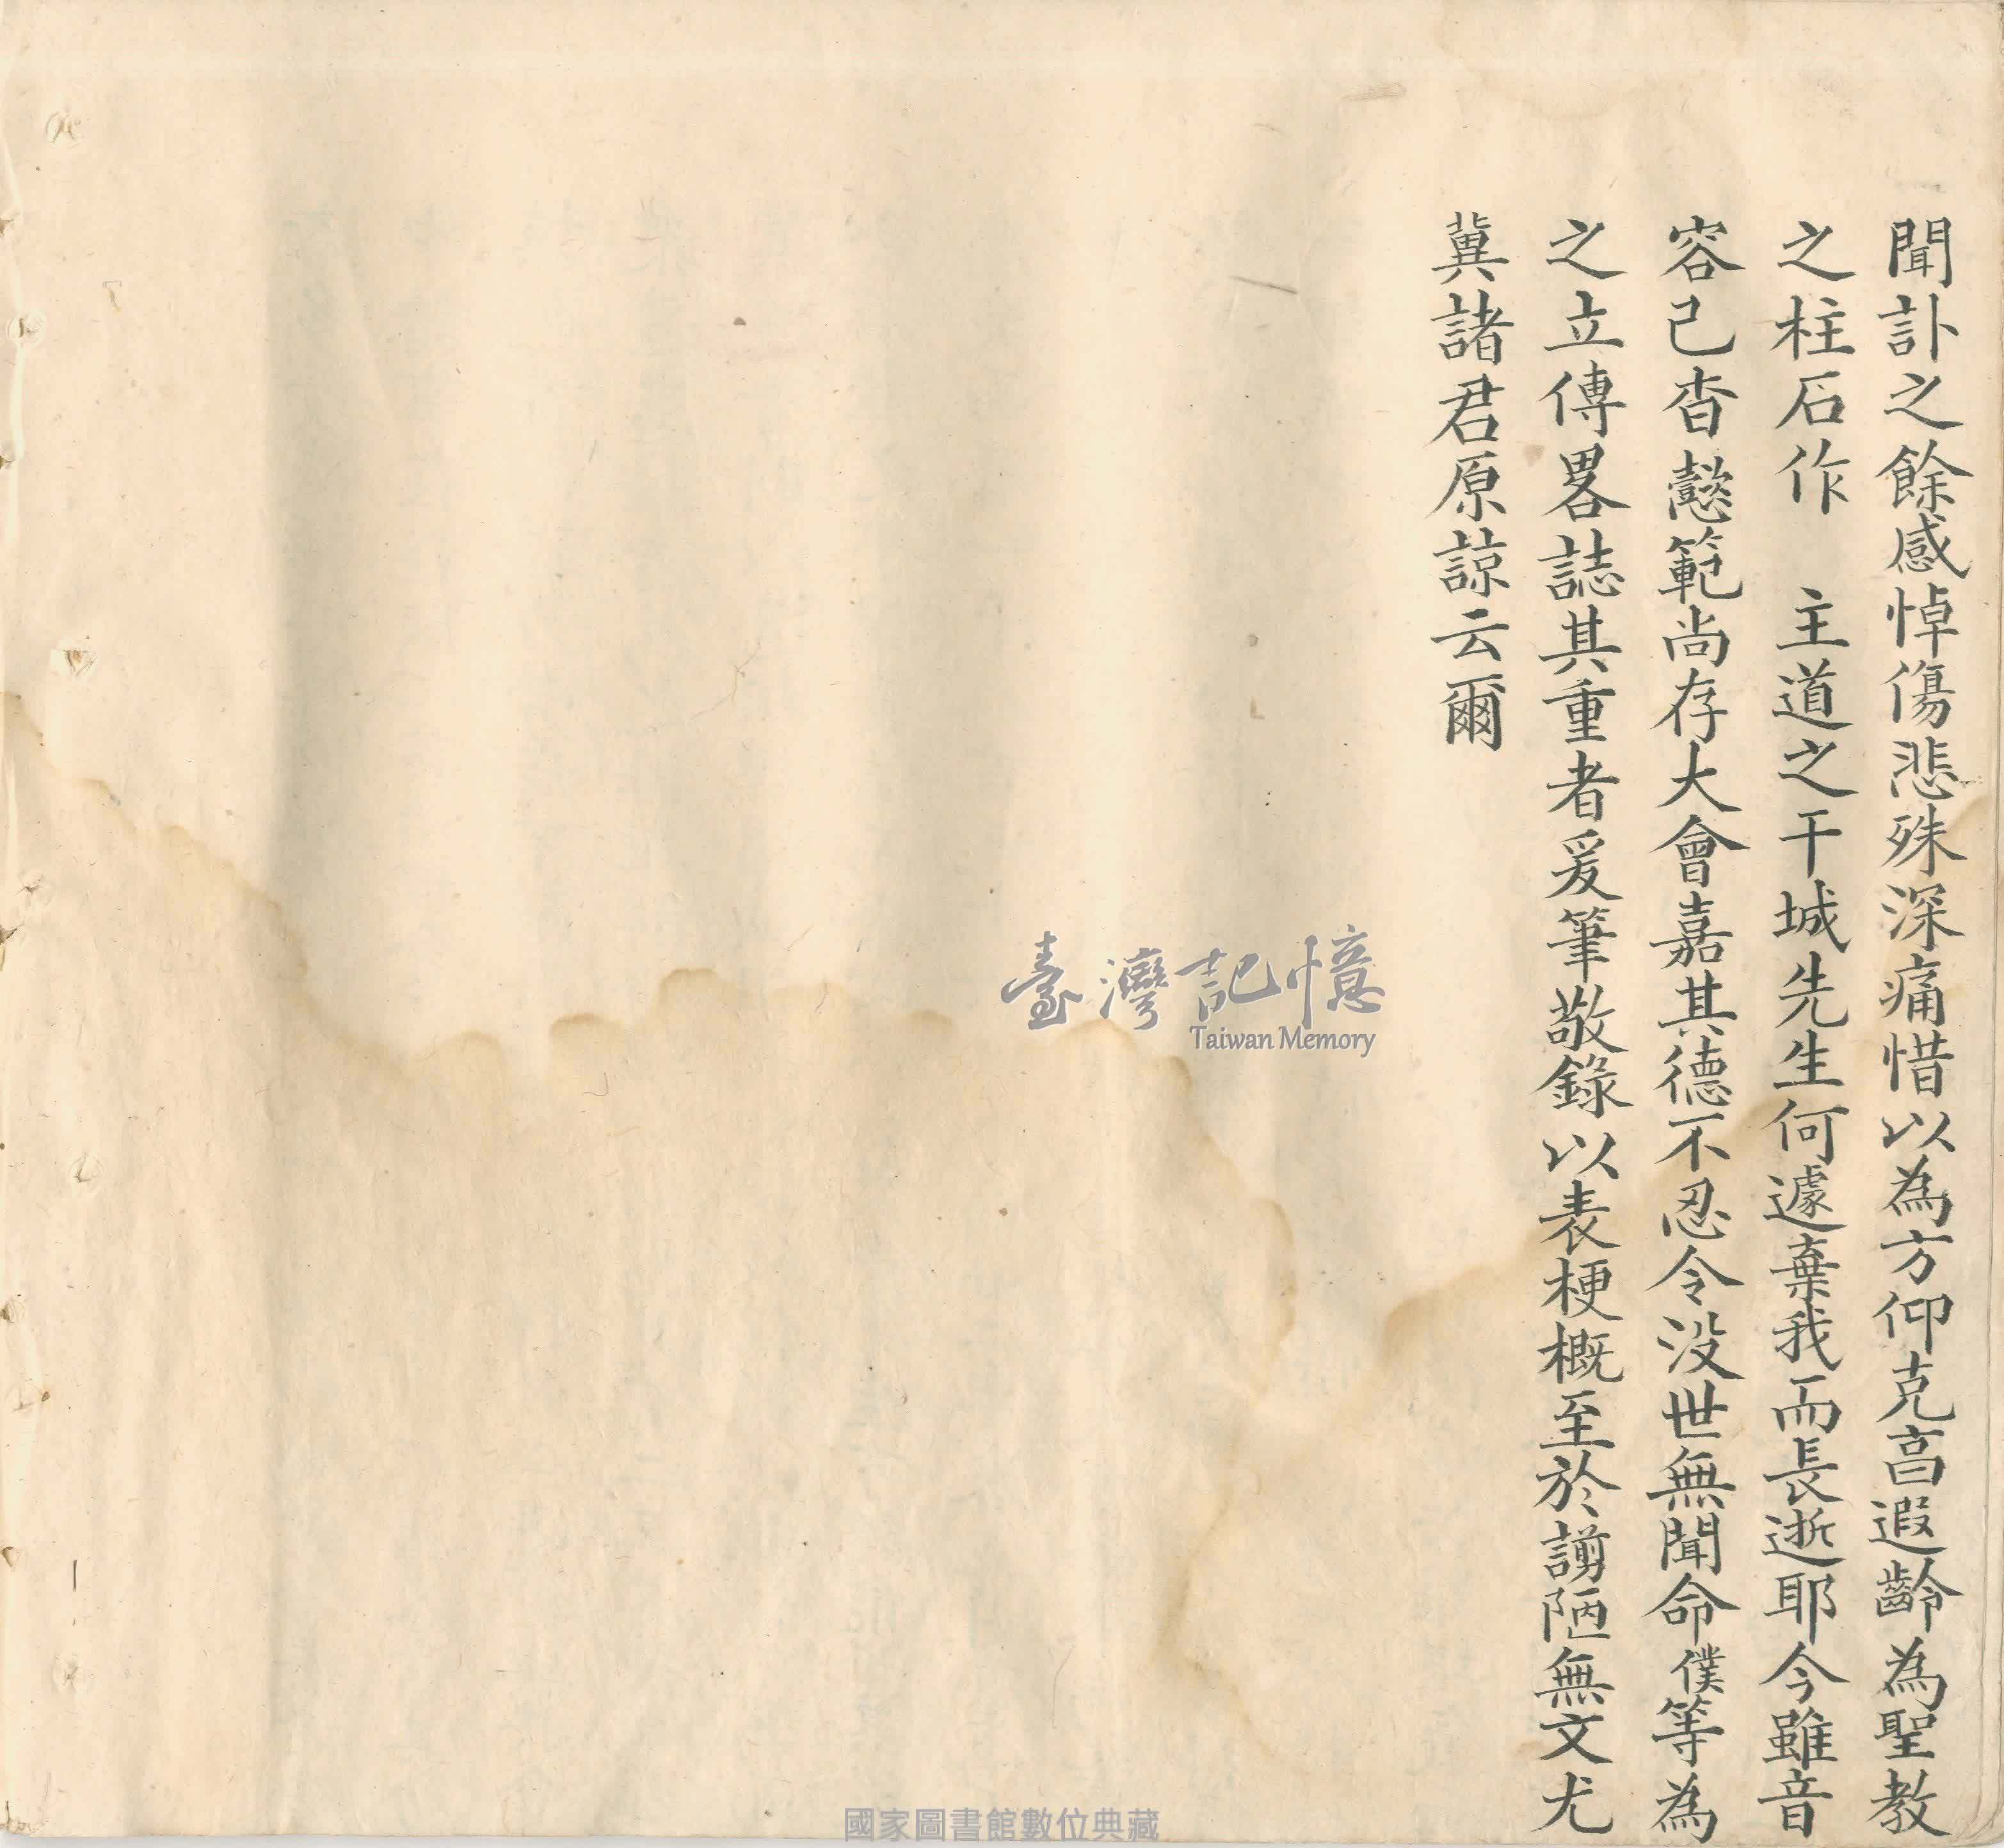 聞訃之餘感悼傷悲殊深痛惜以為方仰克亯遐齡為聖教
之柱石作　主道之干城先生何遽棄我而長逝耶今雖音
容已杳懿範尚存大會嘉其德不忍令没世無聞命僕等為
之立傳畧誌其重者爰筆敬錄以表梗概至於謭陋無文尤
冀諸君原諒云爾
臺灣記憶
Taiwan Memory
國家圖書館數位典藏